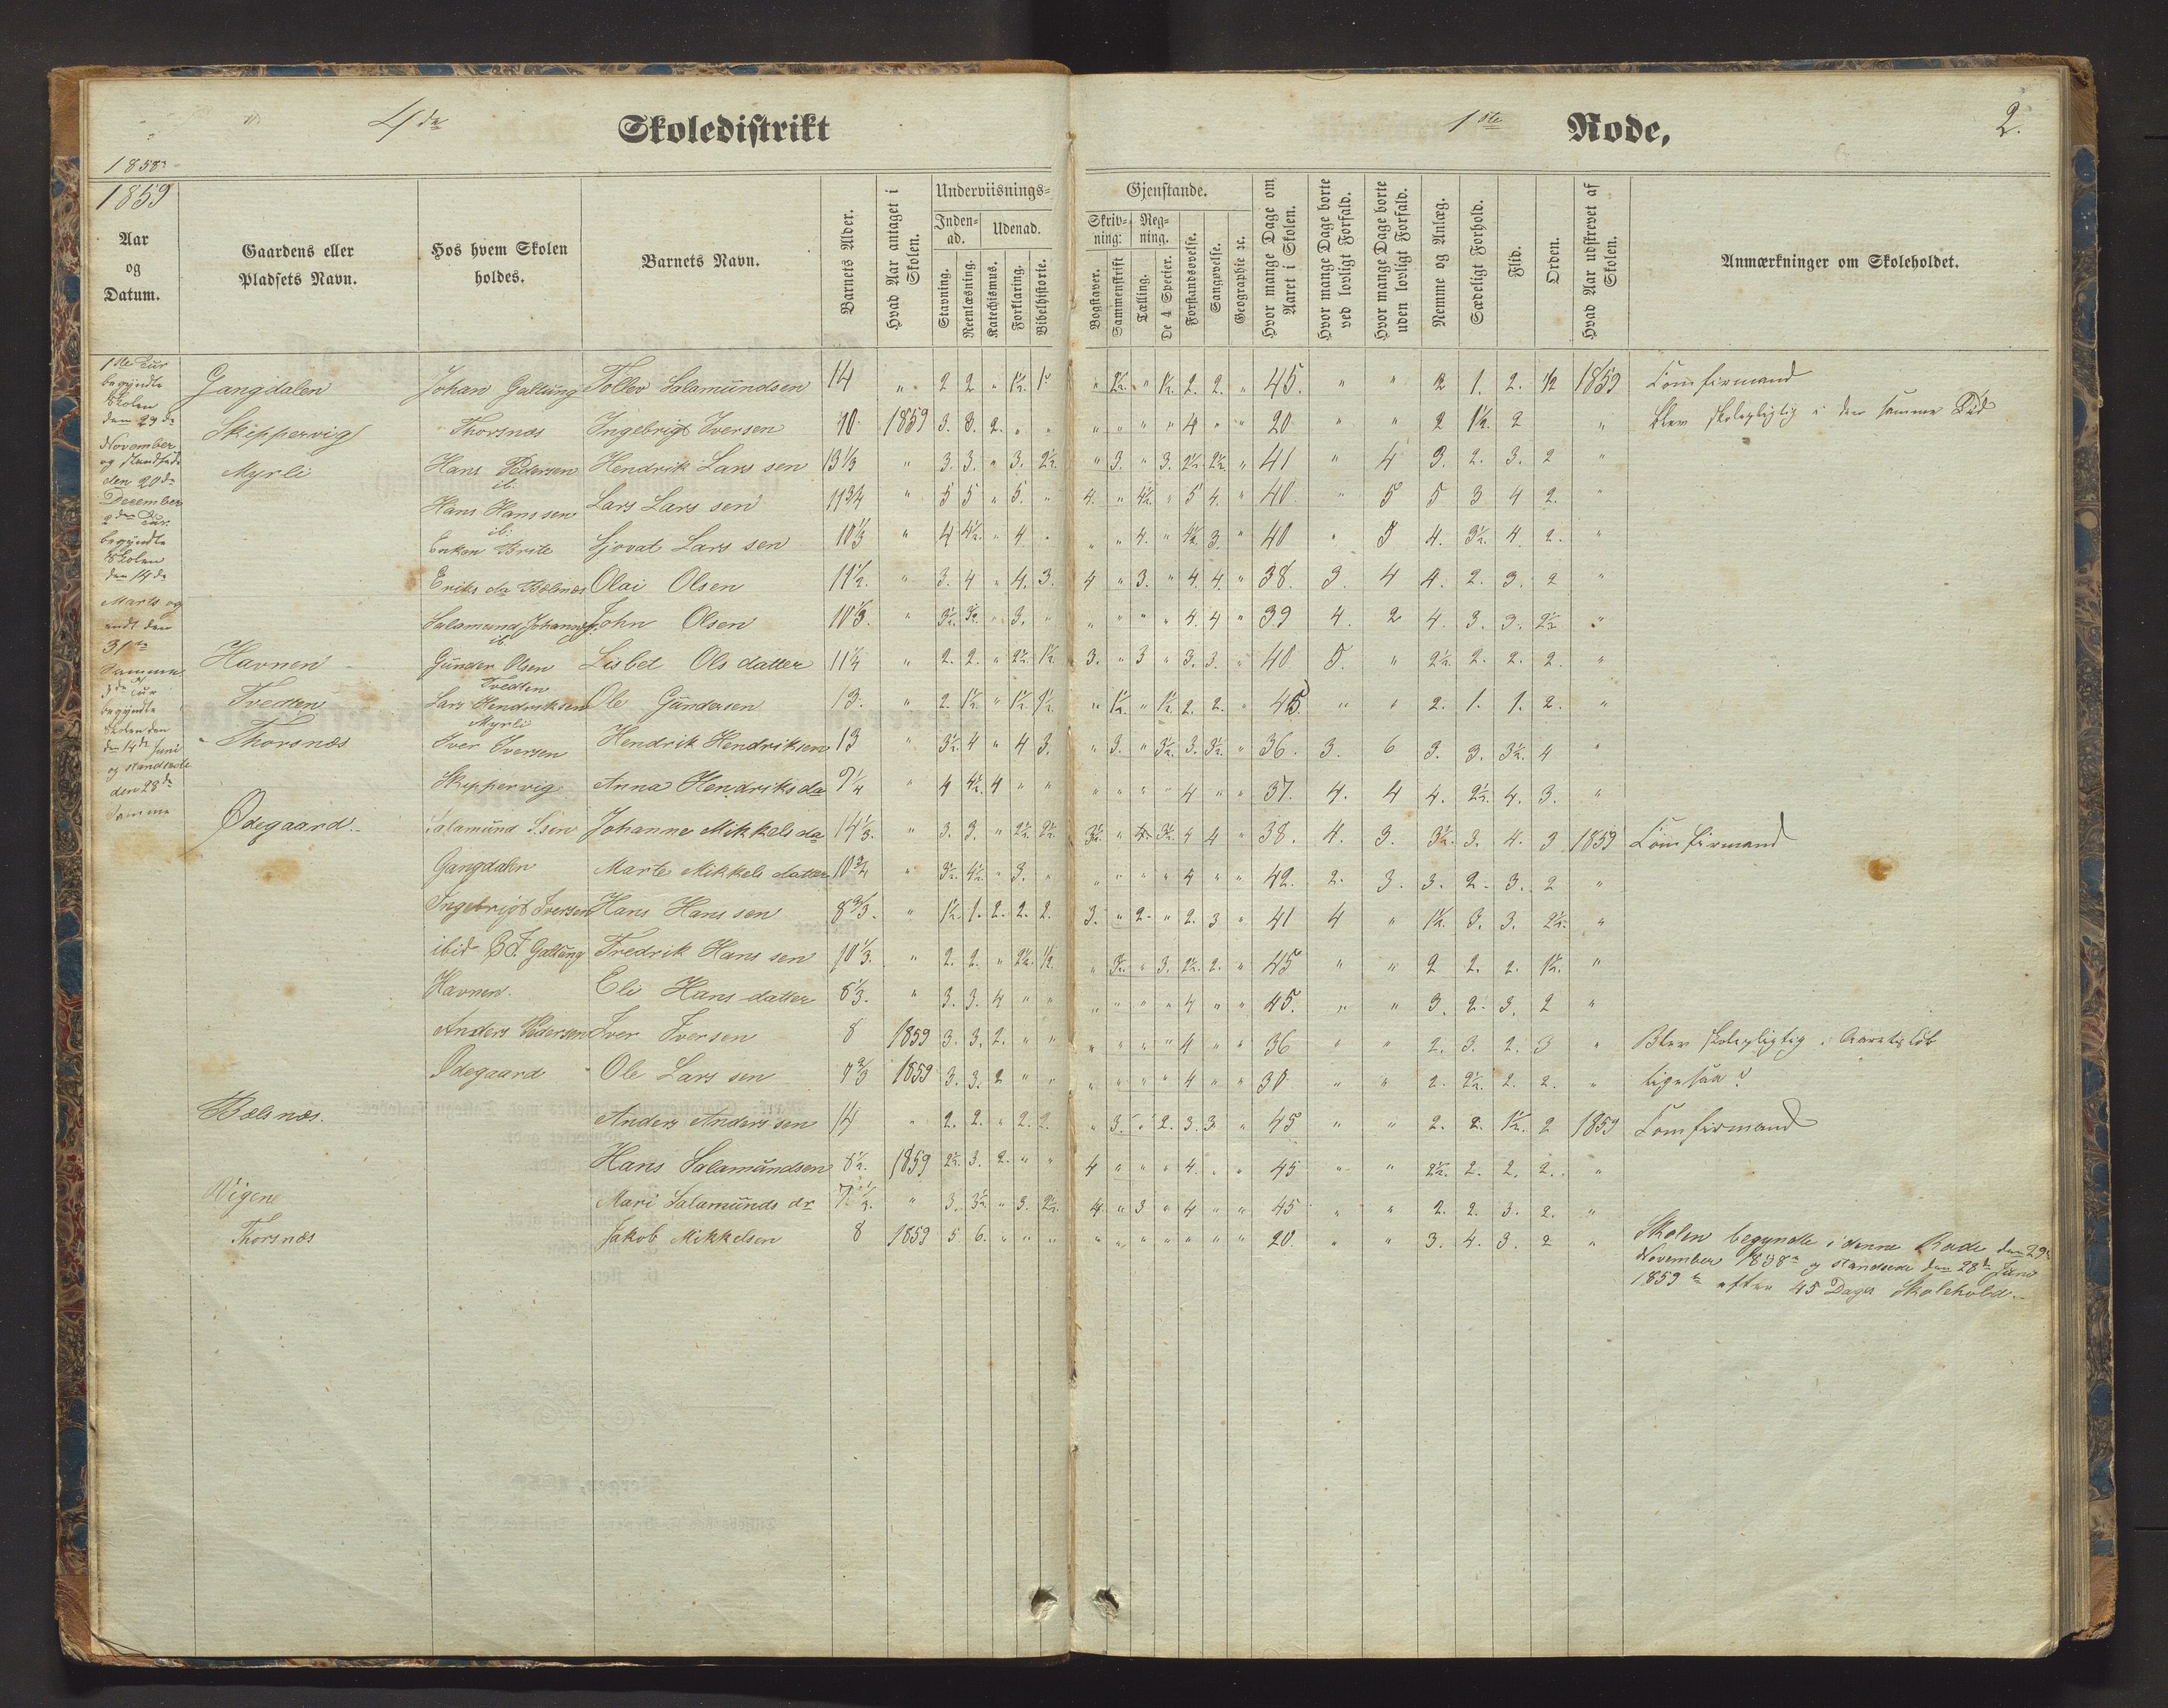 4de Skoledistrikt 1ste Rode, 2.
1858
1859
Aar og Datum.
Gaardens eller Pladsets Navn.
Hos hvem Skolen holdes.
Barnets Navn.
Barnets Alder.
Hvad Aar antaget i Skolen.
Underviisnings-
Inden-ad.
Udenad.
Stavning.
Reenlæsning.
Katechismus.
Forklaring.
Bibelhistorie.
Gjenstande.
Skriv-ning:
Reg-ning.
Bogstaver.
Sammenskrift
Tælling.
De 4 Specier.
Forstandsøvelse.
Sangøvelse.
Geographie ꝛc.
Hvor mange Dage om Aaret i Skolen.
Hvor mange Dage borte ved lovligt Forfald.
Hvor mange Dage borte uden lovligt Forfald.
Nemme og Anlæg.
Sædeligt Forhold.
Flid.
Orden.
Hvad Aar udskrevet af Skolen.
Anmærkninger om Skoleholdet.
1ste Tur
begyndte
Skolen
den 29de
November
og standsede
den 20de
December
2den Tur
begyndte
Skolen
den 14de
Marts og
endt den
31te
Samme
3de Tur
begyndte
Skolen den
den 14de Juni
og standsede
den 28de
Samme
Gangdalen Johan Galtung Tollev Salamundsen 14 " 2 2 " 1½ 1 " 2½ " 1½ 2. 2. " 45. " " 2 1. 2. ½ 1859 Confirmand
Skippervig Thorsnæs Ingebrigt Iversen 10 1859 3. 3. 2. " " " " " " 4 " " 20 " " 2 1½ 2 " Blev skolepligtig i den samme Tid
Myrli Hans Pedersen Hendrik Lars sen 13⅓ " 3. 3. " 3. 2½ " 3. " 3. 2½ 2½ " 41 " 4 3. 2. 3. 2 "
ib.
Hans Hans sen Lars Lars sen 11¾ " 5 5 " 5. " 4. " 4½ " 5 4. " 40 " 5 5 3 4 2. "
ib.
Enken Brite Sjovat Lars sen 10⅓ " 4 4½ " 4 " " " 4. " 4½ 3. " 40 " 5 4. 3½ 4. 2. "
Eriks da Bælsnæs Olai Olsen 11½ " 3. 4 " 4. 3. 4 " 3. " 4. 4. " 38. 3. 4 4. 2. 3. 2 "
Salamund Johannes. John Olsen 10⅓ " 3½ 3½ " 3. " " " " " 4. 4 " 39 4. 2 4. 3. 3. 2½ "
ib
Havnen Gunder Olsen Lisbet Ols datter 11¼ " 2. 2. " 2½ 1½ 3. " 3 " 3. 3. " 40 5. " 2½ 2. 2. 2. "
Tvedten
Tvedten Lars Hendriksen Ole Gundersen 13. " 2. 1½ " 1½ 1½ " 1½ " 1½ 2. 2. " 45 " " 2. 1. 1. 2. "
Myrli
Thorsnæs Iver Iversen Hendrik Hendriksen 13 " 3½ 4 " 4 3. " 3. " 3½ 3. 3½ " 36. 3. 6 3. 3. 3½ 4 "
Skippervig Anna Hendriks da 9¼ " 4 4½ 4 " " " " " " 4 " " 37. 4. 4 4. 2½ 4. 3. "
Ødegaard. Salamund S.sen Johanne Mikkels da 14⅓ " 3. 3. " 2½ 2½ 3½ " 3½ 4 4 " 38. 4. 3. 3½ 3. 4. 3 1859 Confirmand
Gangdalen Marte Mikkels datter 10¾ " 3½ 4½ " 3. " " " " " 4 " " 42. 2. 3. 3. 2. 3. 2 "
Ingebrigt Iversen Hans Hans sen 8⅔ " 1½ 1. 2. 2. 2. 3. " 2. " 2. 3 " 41 4 " 1½ 3. 3. 2½ "
ibid B J. Galtung Fredrik Hans sen 10⅓ " 2. 2. " 2½ 1½ " 3½ " 3. 2½ 2. " 45 " " 2 2. 2. 1½ "
Havnen. Eli Hans datter 8⅓ " 3. 3. 4 " " " " " " 4 " " 45. " " 3. 2. 3. 2 "
Anders Pedersen Iver Iversen 8 1859 3. 3. 2. " " " " " " 4 " " 36 " " 2. 3. 2. 3 " Blev skolepligtig i Aarets Løb
Ødegaard Ole Lars sen 7⅔ 1859 3. 3. 2 " " " " " " 4 " " 30 " " 2. 2½ 2. 2. " ligesaa
Bælsnæs. Anders Anders sen 14 " 2. 2. " 2. 2. " 3. " 2. 3. 3. " 45 " " 2. 2. 1½ 2 1859 Confirmand
Hans Salamundsen 8½ 1859 2½ 3. 2. " " 4 " " " 4. " " 45 " " 2½ 2. 2. 2. "
Vigene Mari Salamunds dr 7½ " 3. 3½ " 3. 2½ 4. " 3 " 4 " " 45 " " 2. 2. 3. 2. "
Thorsnæs Jakob Mikkelsen 8 1859 5 6. " " " " " " " " " " 20. " " 3. 4. 3. 2 "
Skolen begyndte i denne Rode den 29de
November 1858 og standsede den 28de Juni
1859 efter 45 Dages Skolehold.